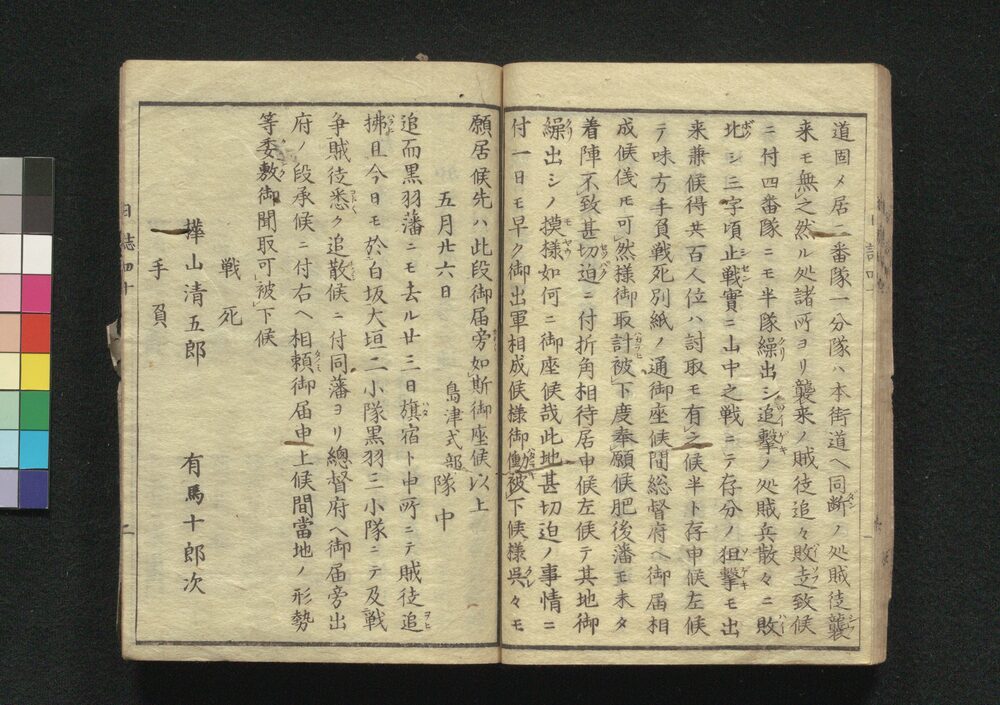 道固メ居二番隊一分隊ハ本街道ヘ同断ノ処賊徒襲
来モ無之然ル処諸所ヨリ襲来ノ賊徒追々敗走致候
ニ付四番隊ニモ半隊繰出シ追撃ノ処賊兵散々ニ敗
北シ三字頃止戦實ニ山中之戦ニテ存分ノ狙撃モ出
来兼候得共百人位ハ討取モ有之候半ト存申候左候
テ味方手負戦死別紙ノ通御座候間総督府ヘ御届相
成候儀モ可然様御取計被下度奉願候肥後藩モ未タ
着陣不致甚切迫ニ付折角相待居申候左候テ其地御
繰出シノ摸様如何ニ御座候哉此地甚切迫ノ事情ニ
付一日モ早ク御出軍相成候様御働被下候様呉々モ
願居候先ハ此段御届旁如斯御座候以上
五月廿六日
島津式部隊中
追而黒羽藩ニモ去ル廿三日旗宿ト申所ニテ賊徒追
拂且今日モ於白坂大垣二小隊黒羽三小隊ニテ及戦
争賊徒悉ク追散候ニ付同藩ヨリ總督府ヘ御届旁出
府ノ段承候ニ付右ヘ相頼御届申上候間當地ノ形勢
等委敷御聞取可被下候
戦死
樺山清五郎
有馬十郎次
手負
日誌四十
二